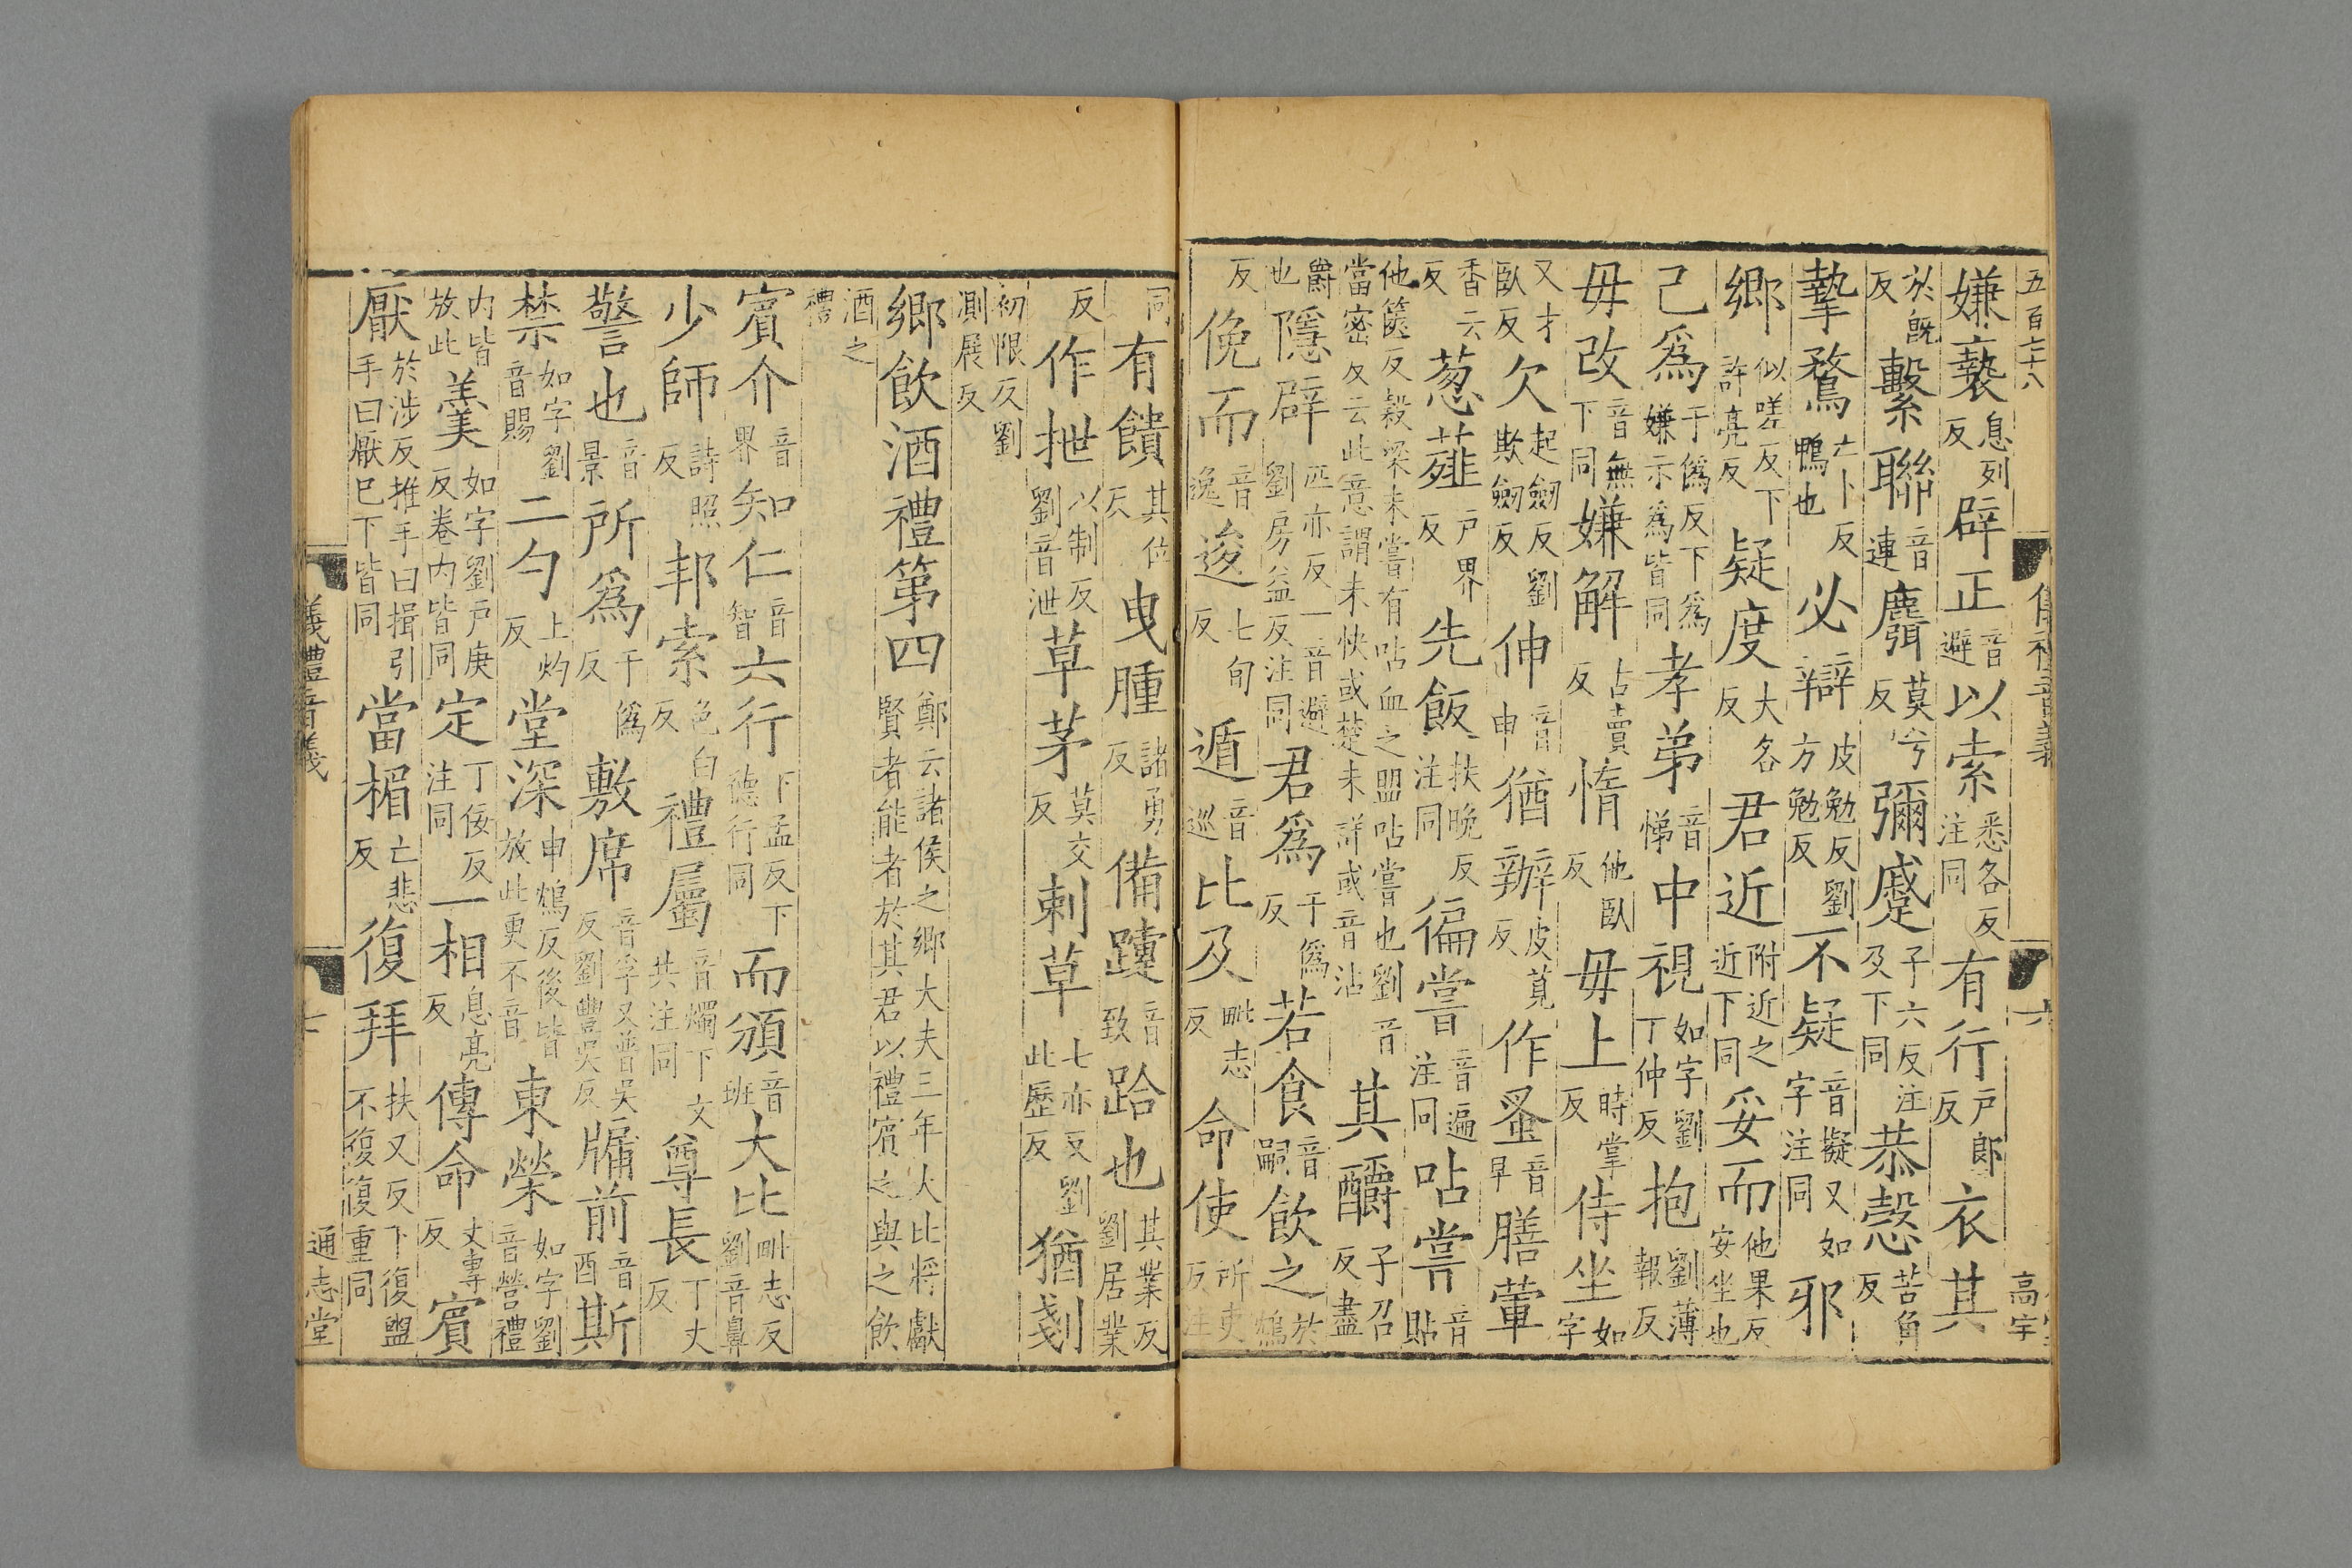 五百七十八 儀禮音義 六 高宇
嫌褻息列反辟正音避以索悉各反注同有行戶郎反衣其
於旣反繫聯音連麛莫兮反彌蹙子六反注及下同恭慤苦角反
摯鶩亡卜反鴨也必辯皮勉反劉方勉反不疑音擬又如字注同邪
鄉似嗟反下許亮反疑度大各反君近附近之近下同妥而他果反安坐也
己爲于僞反下爲嫌示爲皆同孝弟音悌中視如字劉丁仲反抱劉薄報反
毋改音無下同嫌解占賣反惰他臥反毋上時掌反侍坐如字
又才臥反欠起劒反劉欺劒反伸音申猶辦皮莧反作蚤音早膳葷
香云反葱薤戶界反先飯扶晚反注同徧嘗音遍注同呫嘗音貼
他篋反穀梁未嘗有呫血之盟呫嘗也劉音當密反云此意謂未快或楚未詳或音沾其釂子召反盡
爵也隱辟匹亦反一音避劉房益反注同君爲于僞反若食音嗣飲之於鴆
反俛而音逸逡七旬反遁音巡比及毗志反命使所吏反注
同有饋其位反曳腫諸勇反備躓音致跲也其業反劉居業
反作抴以制反劉音泄草茅莫交反刺草七亦反劉此歷反猶剗
初限反劉測展反
鄉飲酒禮第四鄭云諸侯之鄉大夫三年大比將獻賢者能者於其君以禮賓之與之飲
酒之禮
賓介音界知仁音智六行下孟反下德行同而頒音班大比毗志反劉音鼻
少師詩照反邦索色白反禮屬音燭下文共注同尊長丁丈反
警也音景所爲于僞反敷席音孚又普吳反劉豐吳反牖前音酉斯
禁如字劉音賜二勺上灼反堂深申鴆反後皆放此更不音東榮如字劉音營禮
内皆放此羹如字劉戶庚反卷内皆同定丁佞反注同一相息亮反傳命丈專反賓
厭於涉反推手曰揖引手曰厭巳下皆同當楣亡悲反復拜扶又反下復盥不復復重同
儀禮音義 七 通志堂